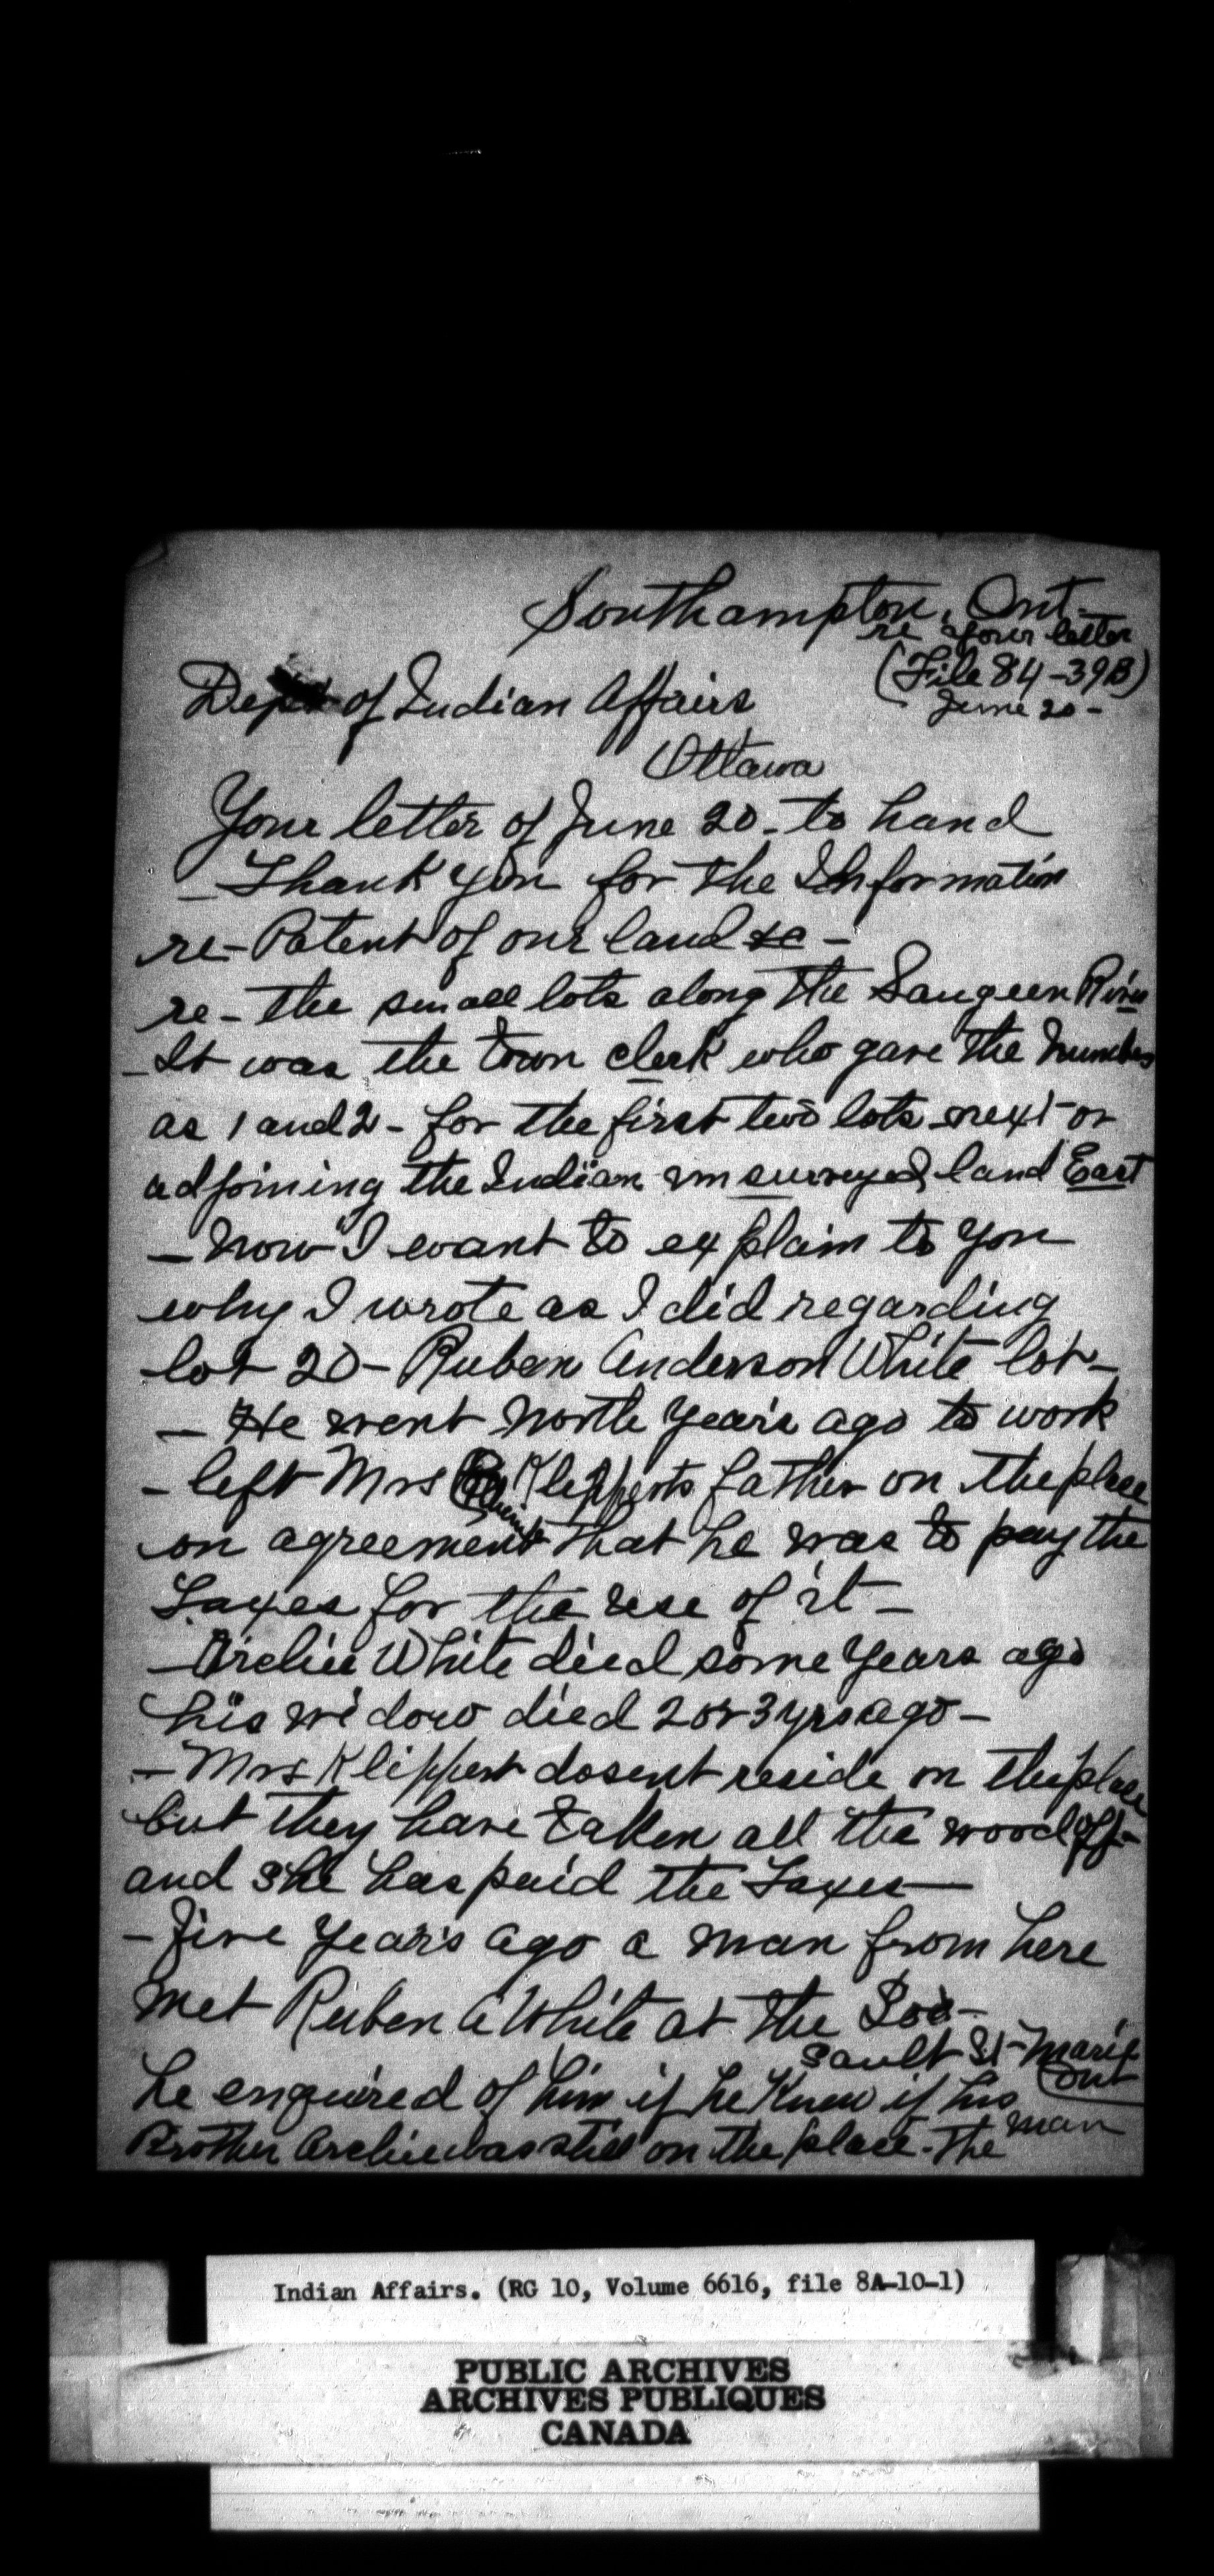 Southampton, Ont-
re your letter
(File 84-39B)
June 20-
Dept of Indian Affairs
Ottawa
Your letter of June 20- to hand
- Thank you for the Information
re- Patent of our land &c -
re- the small lots along the Saugeen River
- It was the town clerk who gave the numbers
as 1 and 2 - for the first two lots next or
adjoining the Indian unsurveyed land East
- Now I want to explain to you
why I wrote as I did regarding
lot 20 - Ruben Anderson White lot -
- He went North years ago to work
- left Mrs Klipperts father on the place
on agreement that he was to pay the
Taxes for the use of it -
- Archie White died some years ago
his widow died 2 or 3 yrs ago -
- Mrs Klippert dosent reside on the place
but they have taken all the wood off -
and she has paid the Taxes -
- Five years ago a man from here
met Ruben A White at the Soo -
Sault St Marie
Ont
he enquired of him if he knew if his
Brother Archie was still on the place - The man
Indian Affairs. (RG 10, Volume 6616, file 8A-10-1)
PUBLIC ARCHIVES
ARCHIVES PUBLIQUES
CANADA